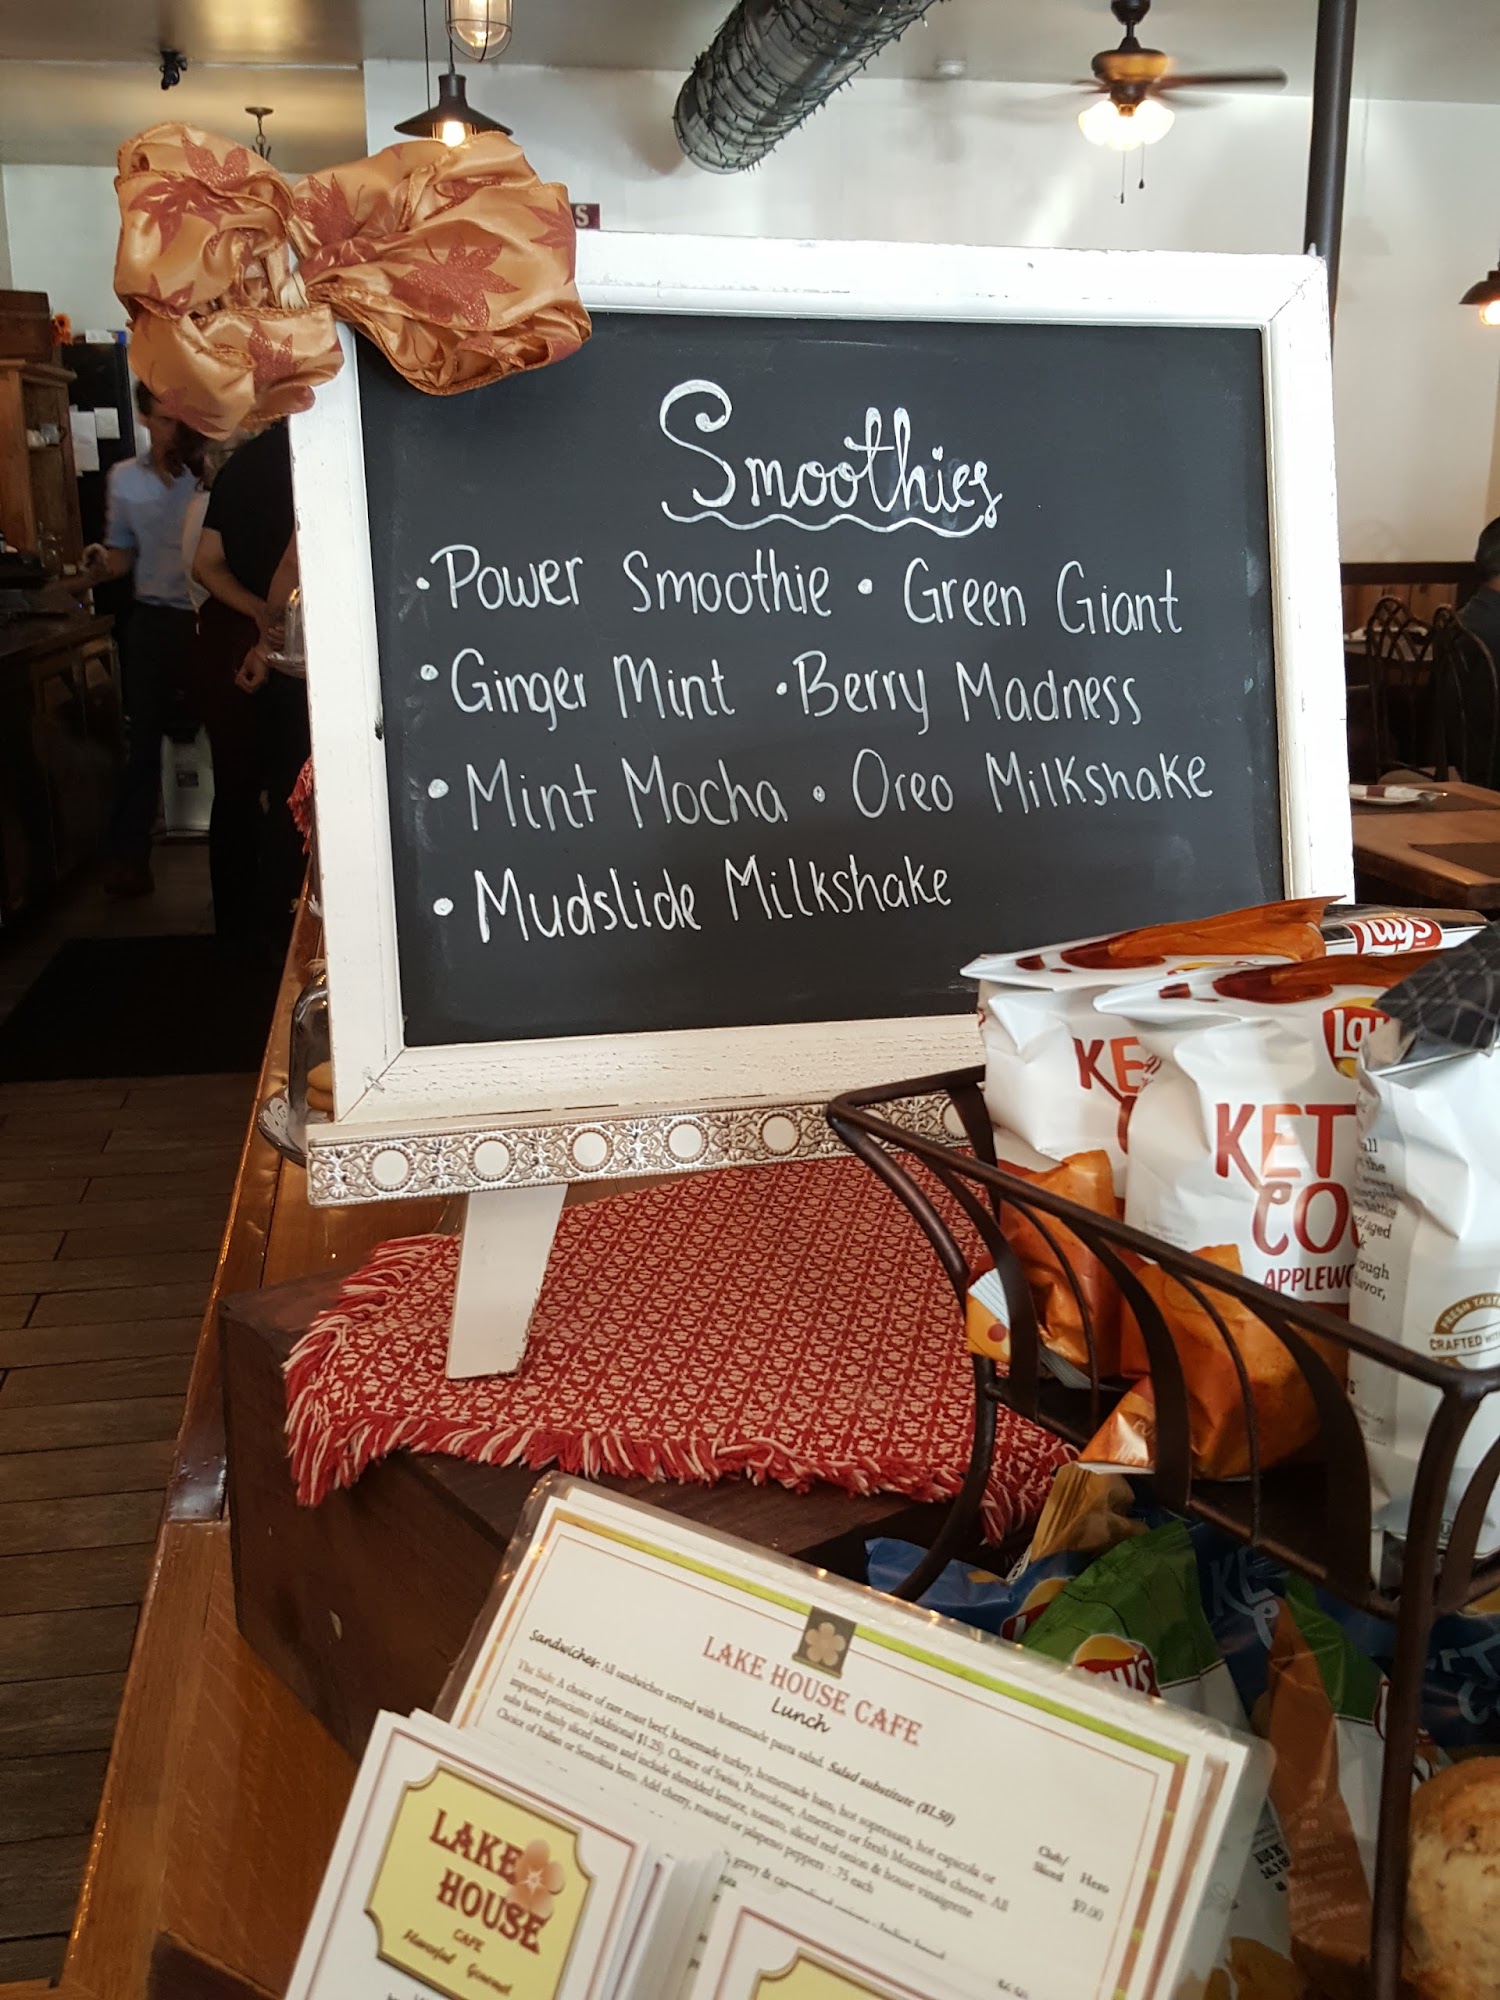 S
Smoothies
• Power Smoothie • Green Giant
• Ginger Mint • Berry Madness
• Mint Mocha • Oreo Milkshake
• Mudslide Milkshake
Lay's
KE
KET
CO
APPLEW
FRESH TAST
CRAFTED WITH
Lay's
LAKE HOUSE CAFE
Lunch
Sandwiches: All sandwiches served with homemade pasta salad. Salad substitute ($1.50)
The Sub: A choice of rare roast beef, homemade turkey, homemade ham, hot sopressata, hot capicola or
imported prosciutto (additional $1.25). Choice of Swiss, Provolone, American or fresh Mozzarella cheese. All
subs have thinly sliced meats and include shredded lettuce, tomato, sliced red onion & house vinaigrette
Choice of Italian or Semolina hero. Add cherry, roasted or jalapeno peppers : .75 each
Club/ Hero
Sliced $9.00
LAKE
HOUSE
CAFE
Flavorful Gourmet